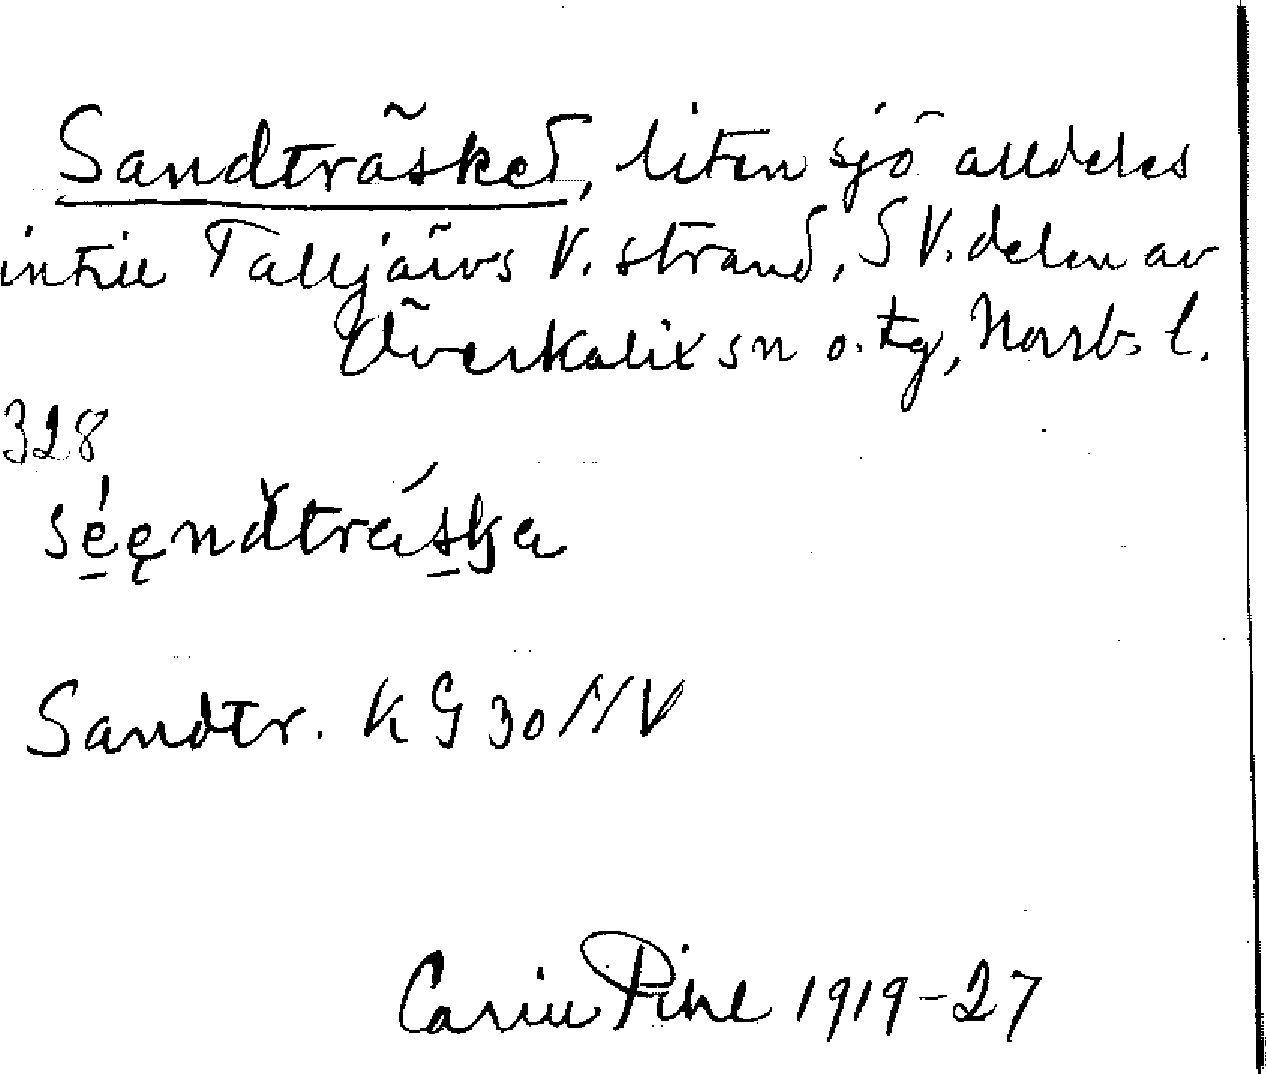 Sandträsket, liten sjö alldeles
intill Talljärvs V. strand, SV. delen av
Överkalix sn o. tg, Norrb. l.
328
Sandtr. KG 30 NV
Carin Pihl 1919-27